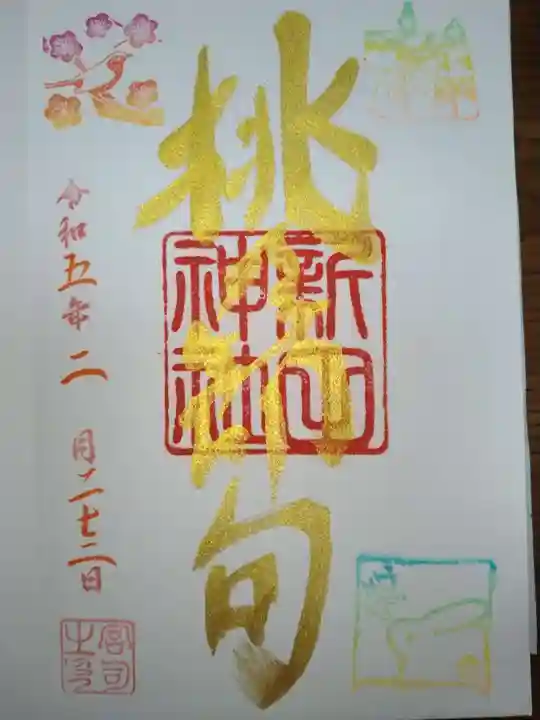 桃節句
新田神社
令和五年二月二七二日
宮司之印